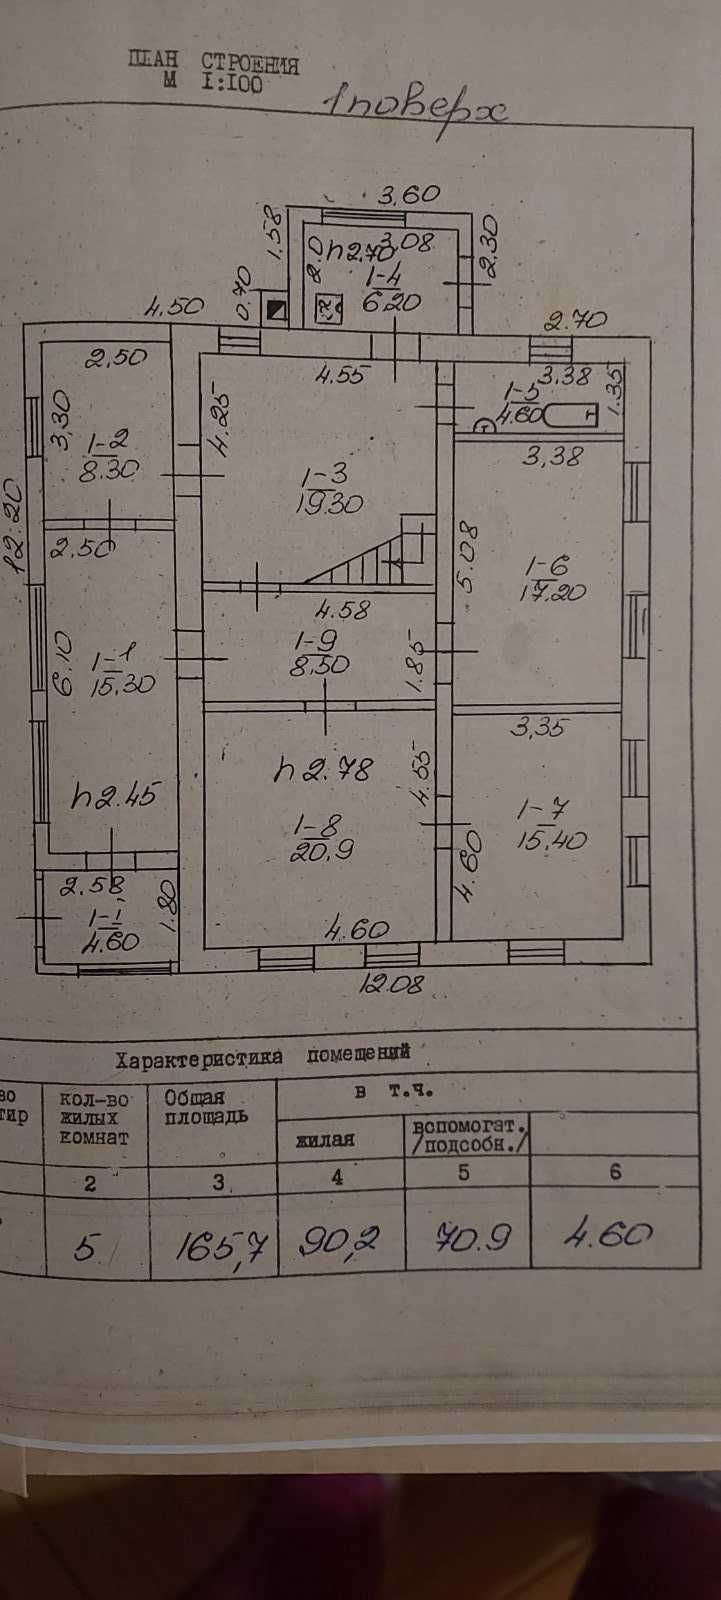 ПЛАН СТРОЕНИЯ
М 1:100
1 поверх
3,60
1.58
3.08
2.0
h2.70
2.30
1-4
6.20
0.70
4.50
2.70
2.50
4.55
3.38
1.35
1-5
4.60
3,30
4.25
1-2
8.30
3,38
1-3
19.30
12.20
2.50
5.08
1-6
17.20
4.58
1-9
8.50
1.85
6.10
1-1
15.30
3,35
h2.78
4.55
h2.45
1-8
20.9
1-7
15.40
4.60
2.58
1.80
1-1
4.60
4.60
12.08
Характеристика помещений
кол-во жилых комнат
Общая площадь
в т.ч.
жилая
вспомогат. /подсобн./
2 3 4 5 6
5 165,7 90,2 70.9 4.60